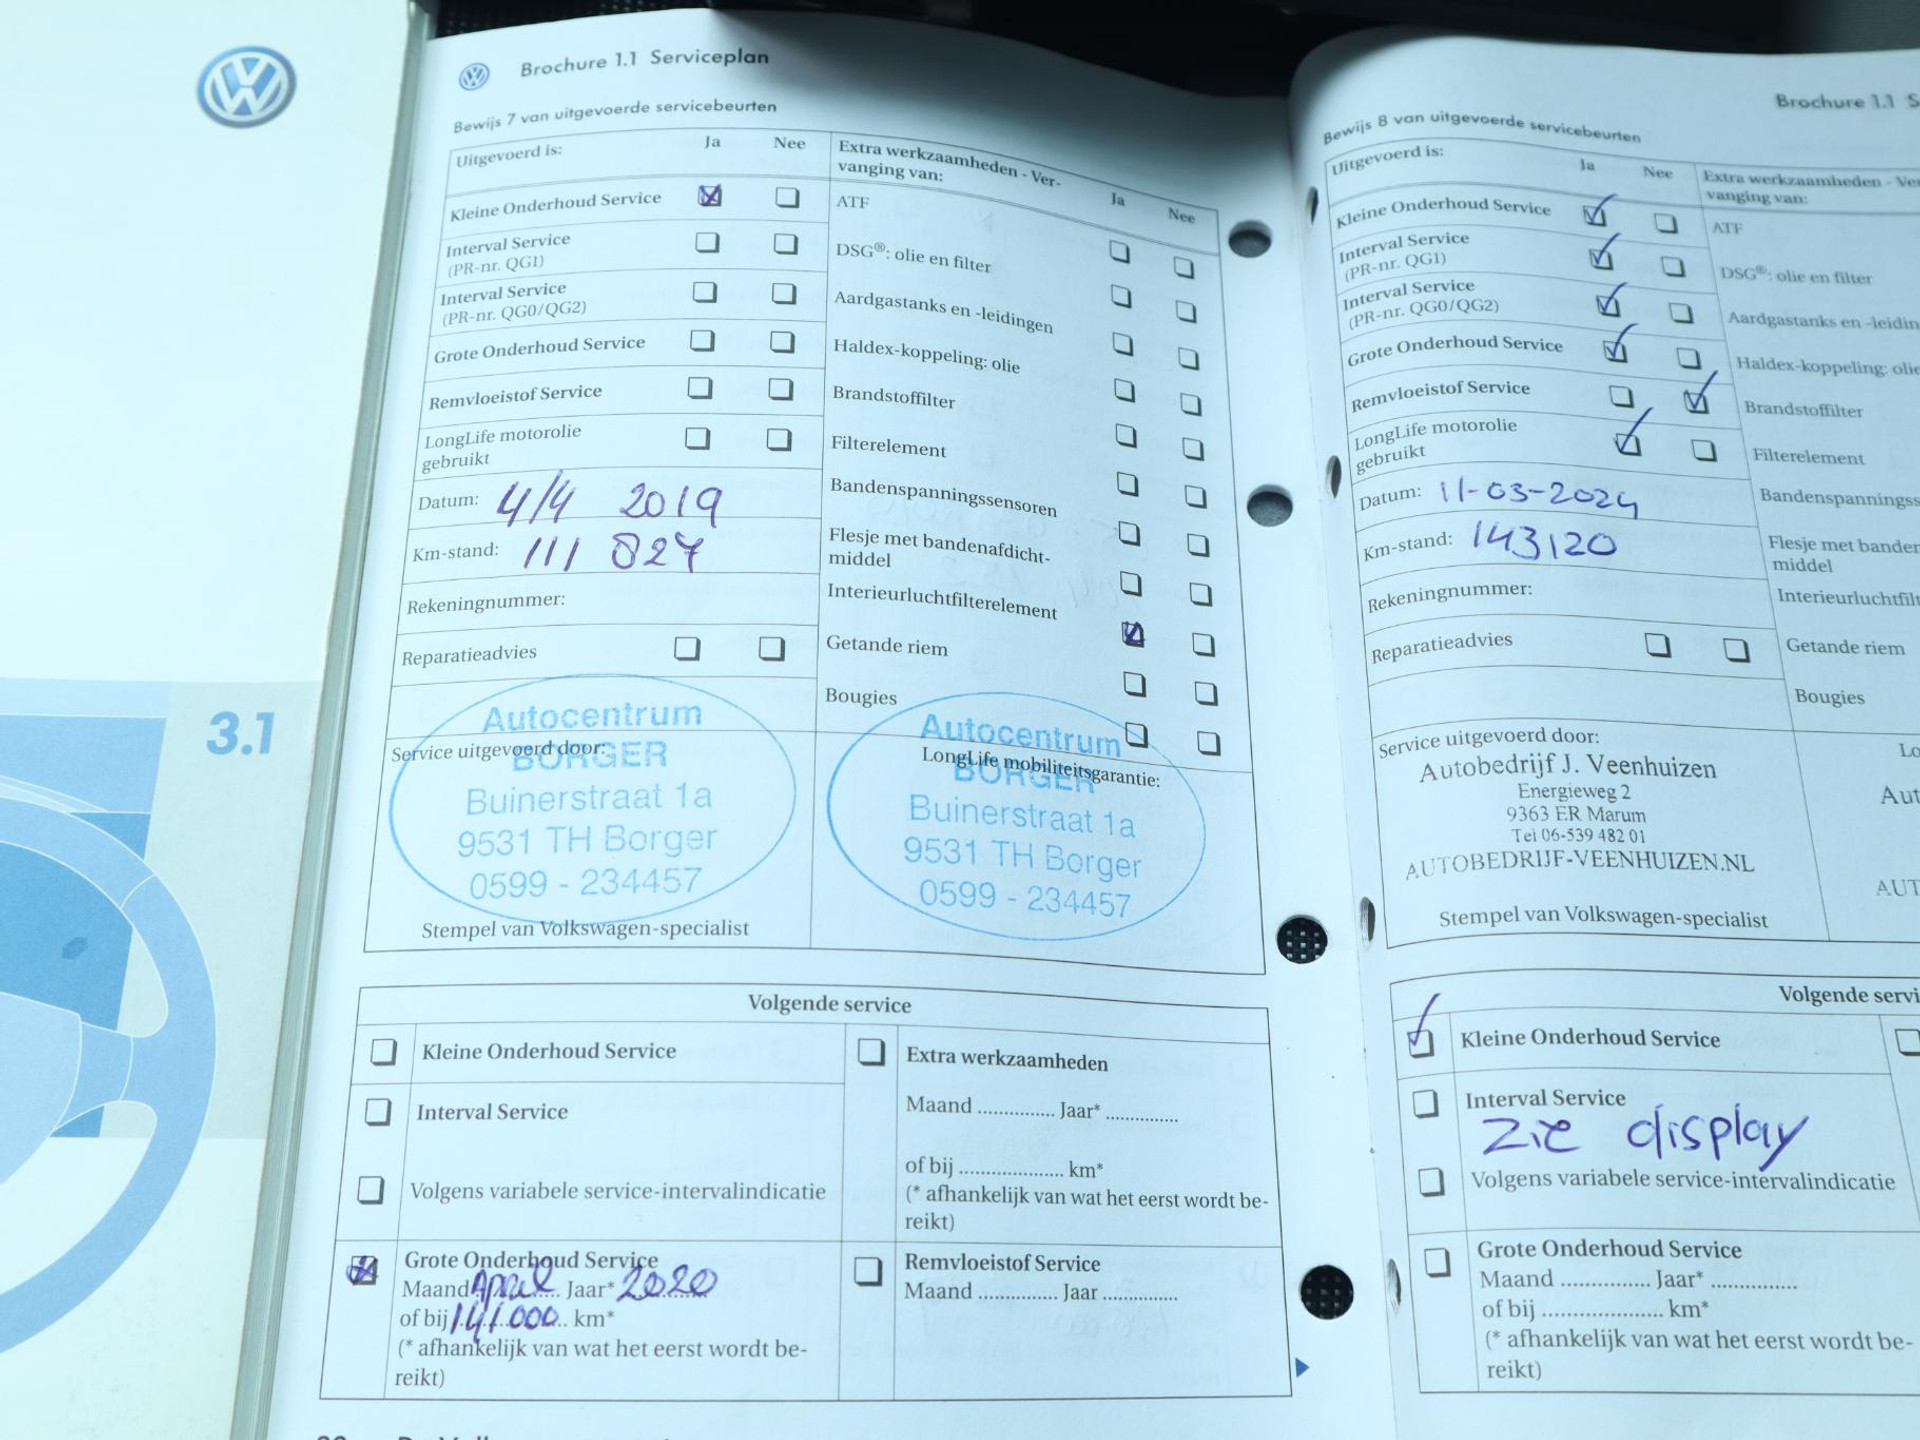 Brochure 1.1 Serviceplan
Bewijs 7 van uitgevoerde servicebeurten
Uitgevoerd is:
Ja
Nee
Kleine Onderhoud Service
Interval Service
(PR-nr. QG1)
Interval Service
(PR-nr. QG0/QG2)
Grote Onderhoud Service
Remvloeistof Service
LongLife motorolie
gebruikt
Datum: 4/4 2019
Km-stand: 111 827
Rekeningnummer:
Reparatieadvies
Extra werkzaamheden - Ver-
vanging van:
Ja
Nee
ATF
DSG®: olie en filter
Aardgastanks en -leidingen
Haldex-koppeling: olie
Brandstoffilter
Filterelement
Bandenspanningssensoren
Flesje met bandenafdicht-
middel
Interieurluchtfilterelement
Getande riem
Bougies
Service uitgevoerd door:
Autocentrum
BORGER
Buinerstraat 1a
9531 TH Borger
0599 - 234457
Stempel van Volkswagen-specialist
LongLife mobiliteitsgarantie:
Autocentrum
BORGER
Buinerstraat 1a
9531 TH Borger
0599 - 234457
Volgende service
Kleine Onderhoud Service
Interval Service
Volgens variabele service-intervalindicatie
Grote Onderhoud Service
Maand April Jaar* 2020
of bij 141.000 km*
(* afhankelijk van wat het eerst wordt be-
reikt)
Extra werkzaamheden
Maand .............. Jaar* ..............
of bij .................... km*
(* afhankelijk van wat het eerst wordt be-
reikt)
Remvloeistof Service
Maand .............. Jaar ..............
Brochure 1.1 S
Bewijs 8 van uitgevoerde servicebeurten
Uitgevoerd is:
Ja
Nee
Kleine Onderhoud Service
Interval Service
(PR-nr. QG1)
Interval Service
(PR-nr. QG0/QG2)
Grote Onderhoud Service
Remvloeistof Service
LongLife motorolie
gebruikt
Datum: 11-03-2024
Km-stand: 143120
Rekeningnummer:
Reparatieadvies
Extra werkzaamheden - Ver
vanging van:
ATF
DSG®: olie en filter
Aardgastanks en -leidin
Haldex-koppeling: olie
Brandstoffilter
Filterelement
Bandenspannings
Flesje met banden
middel
Interieurluchtfilt
Getande riem
Bougies
Service uitgevoerd door:
Autobedrijf J. Veenhuizen
Energieweg 2
9363 ER Marum
Tel 06-539 482 01
AUTOBEDRIJF-VEENHUIZEN.NL
Stempel van Volkswagen-specialist
Lo
Aut
AUT
Volgende servi
Kleine Onderhoud Service
Interval Service
Zie display
Volgens variabele service-intervalindicatie
Grote Onderhoud Service
Maand .............. Jaar* ..............
of bij .................... km*
(* afhankelijk van wat het eerst wordt be-
reikt)
3.1